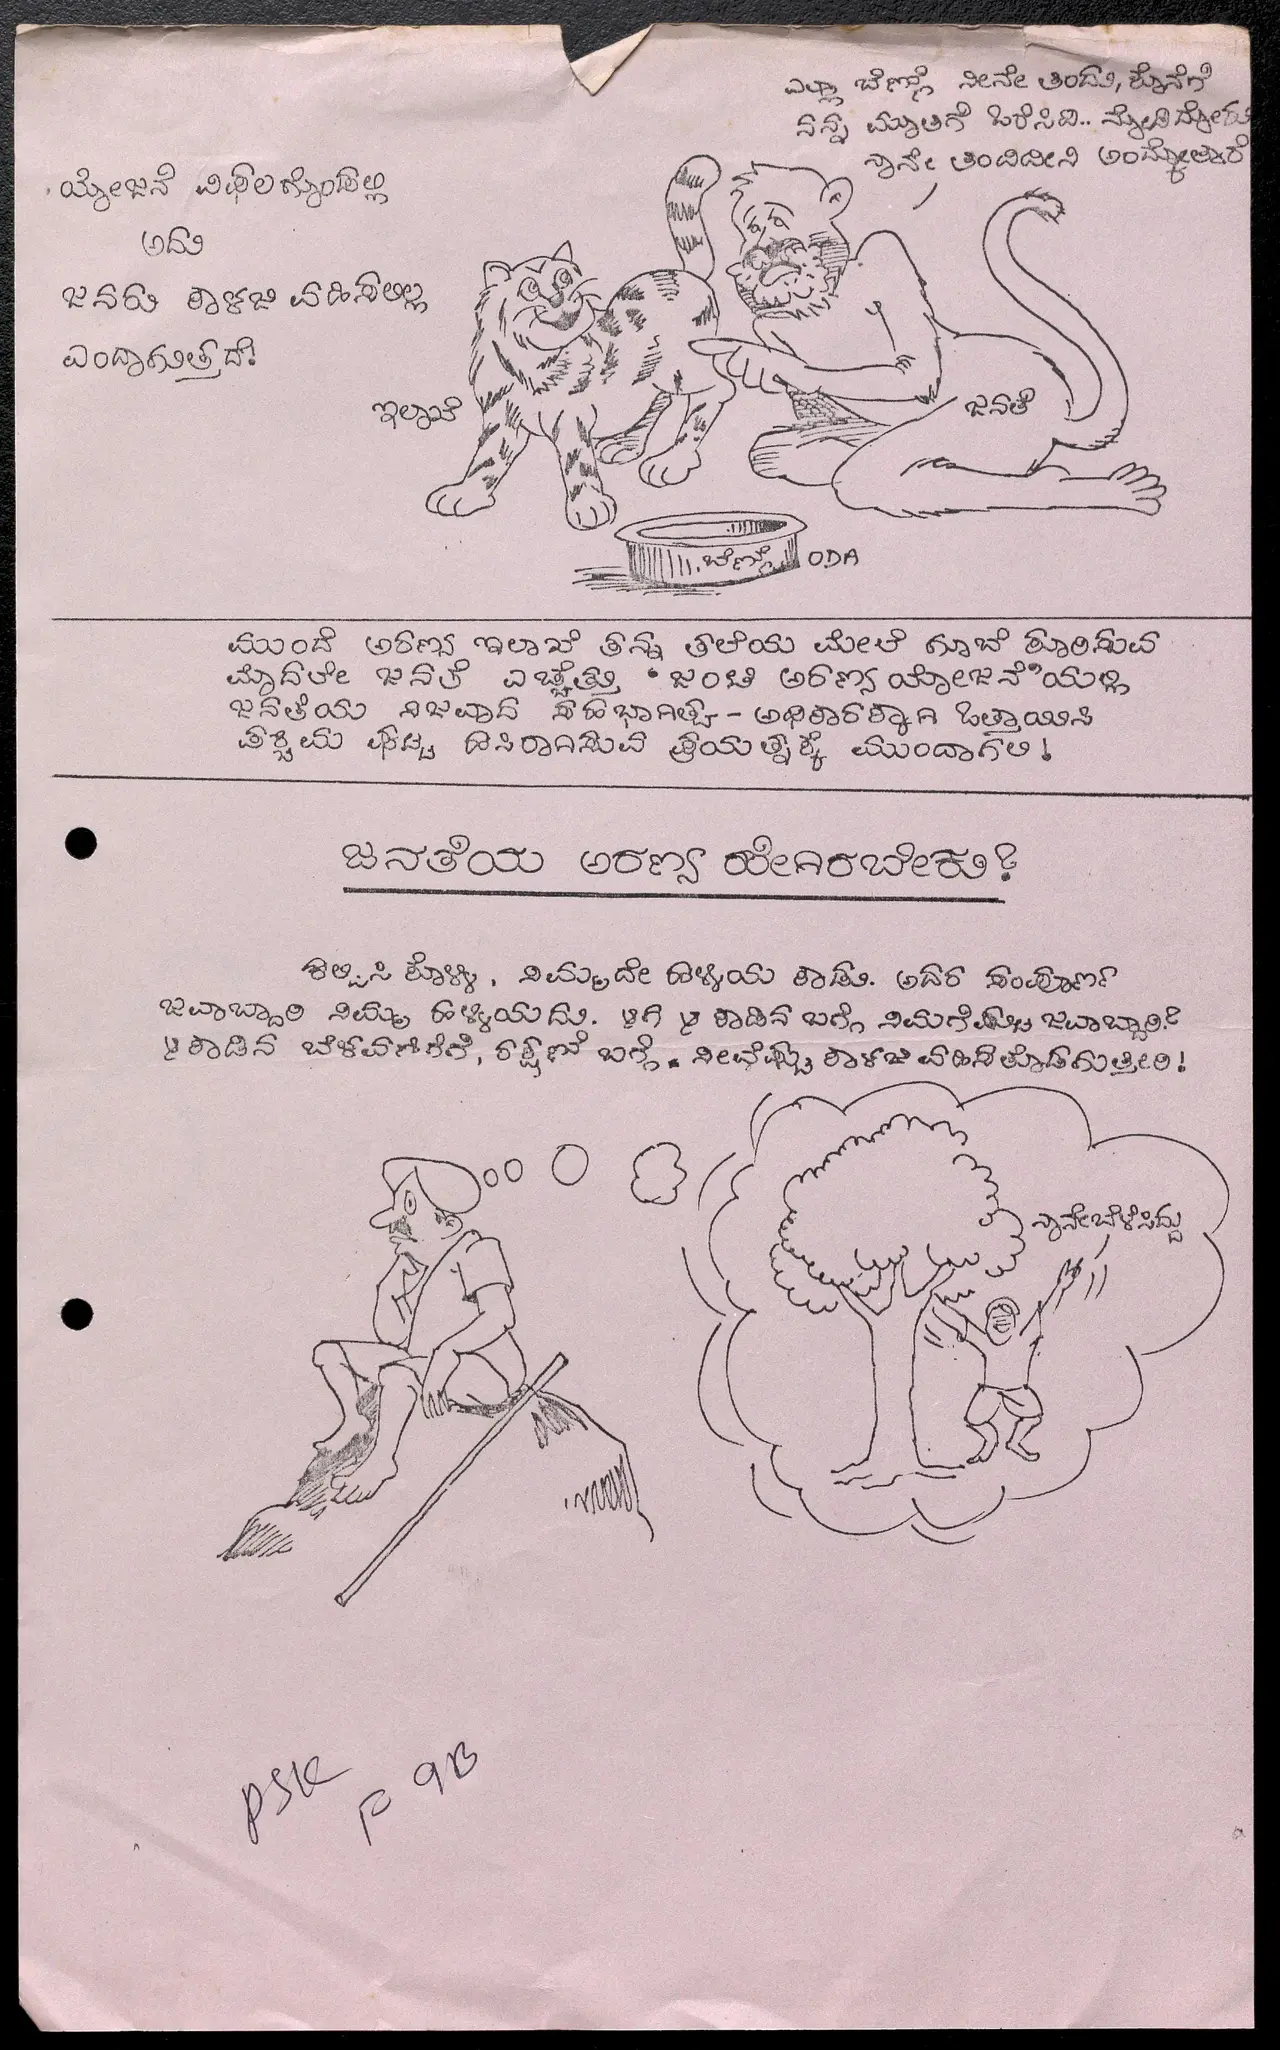 ಎಲ್ಲಾ ಬೆಣ್ಣೆ ನೀನೇ ತಿಂದು, ಕೊನೆಗೆ
ನನ್ನ ಮೂತಿಗೆ ಒರೆಸಿದಿ.. ನೋಡಿದ್ದೋರು
ನಾನೇ ತಿಂದಿದೀನಿ ಅಂದ್ಕೋತಾರೆ
ಯೋಜನೆ ವಿಫಲಗೊಂಡಲ್ಲಿ
ಅದು
ಜನರು ಕಾಳಜಿ ವಹಿಸಲಿಲ್ಲ
ಎಂದಾಗುತ್ತದೆ!
ಇಲಾಖೆ
ಜನತೆ
ಬೆಣ್ಣೆ ODA
ಮುಂದೆ ಅರಣ್ಯ ಇಲಾಖೆ ತನ್ನ ತಲೆಯ ಮೇಲೆ ಗೂಬೆ ಕೂರಿಸುವ
ಮೊದಲೇ ಜನತೆ ಎಚ್ಚೆತ್ತು "ಜಂಟಿ ಅರಣ್ಯ ಯೋಜನೆ"ಯಲ್ಲಿ
ಜನತೆಯ ನಿಜವಾದ ಸಹಭಾಗಿತ್ವ - ಅಧಿಕಾರಕ್ಕಾಗಿ ಒತ್ತಾಯಿಸಿ
ಪಶ್ಚಿಮ ಘಟ್ಟ ಹಸಿರಾಗಿಸುವ ಪ್ರಯತ್ನಕ್ಕೆ ಮುಂದಾಗಲಿ!
ಜನತೆಯ ಅರಣ್ಯ ಹೇಗಿರಬೇಕು?
ಕಲ್ಪಿಸಿ ಕೊಳ್ಳಿ, ನಿಮ್ಮದೇ ಹಳ್ಳಿಯ ಕಾಡು. ಅದರ ಸಂಪೂರ್ಣ
ಜವಾಬ್ದಾರಿ ನಿಮ್ಮ ಹಳ್ಳಿಯದು. ಆಗ ಆ ಕಾಡಿನ ಬಗ್ಗೆ ನಿಮಗೆಷ್ಟು ಜವಾಬ್ದಾರಿ?
ಆ ಕಾಡಿನ ಬೆಳವಣಿಗೆಗೆ, ರಕ್ಷಣೆ ಬಗ್ಗೆ. ನೀವೆಷ್ಟು ಕಾಳಜಿ ವಹಿಸತೊಡಗುತ್ತೀರಿ!
ನಾನೇ ಬೆಳೆಸಿದ್ದು
PSK
F 9B